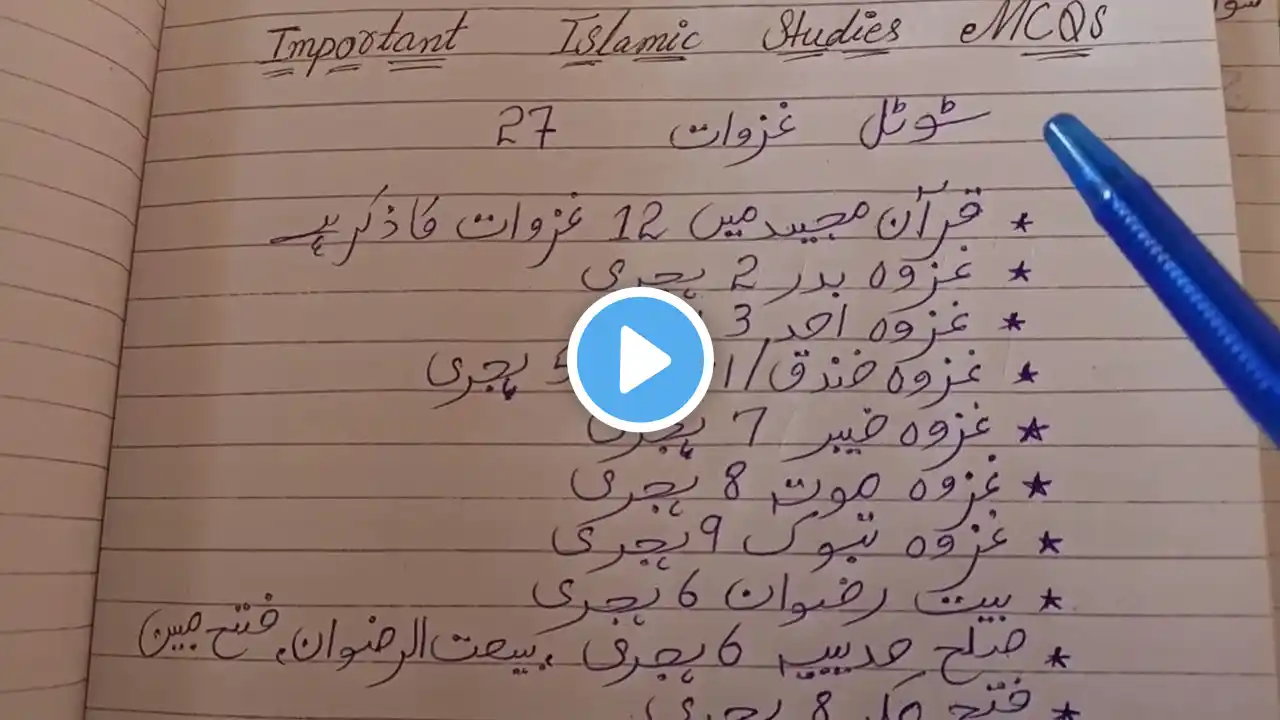 Important Islamic Studies MCQS
ٹوٹل غزوات 27
★ قرآن مجید میں 12 غزوات کا ذکر ہے
★ غزوہ بدر 2 ہجری
★ غزوہ احد 3
★ غزوہ خندق/ 5 ہجری
★ غزوہ خیبر 7 ہجری
★ غزوہ موتہ 8 ہجری
★ غزوہ تبوک 9 ہجری
★ بیت رضوان 6 ہجری
★ صلح حدیبیہ 6 ہجری، بیعت الرضوان، فتح مبین
★ فتح مکہ 8 ہجری